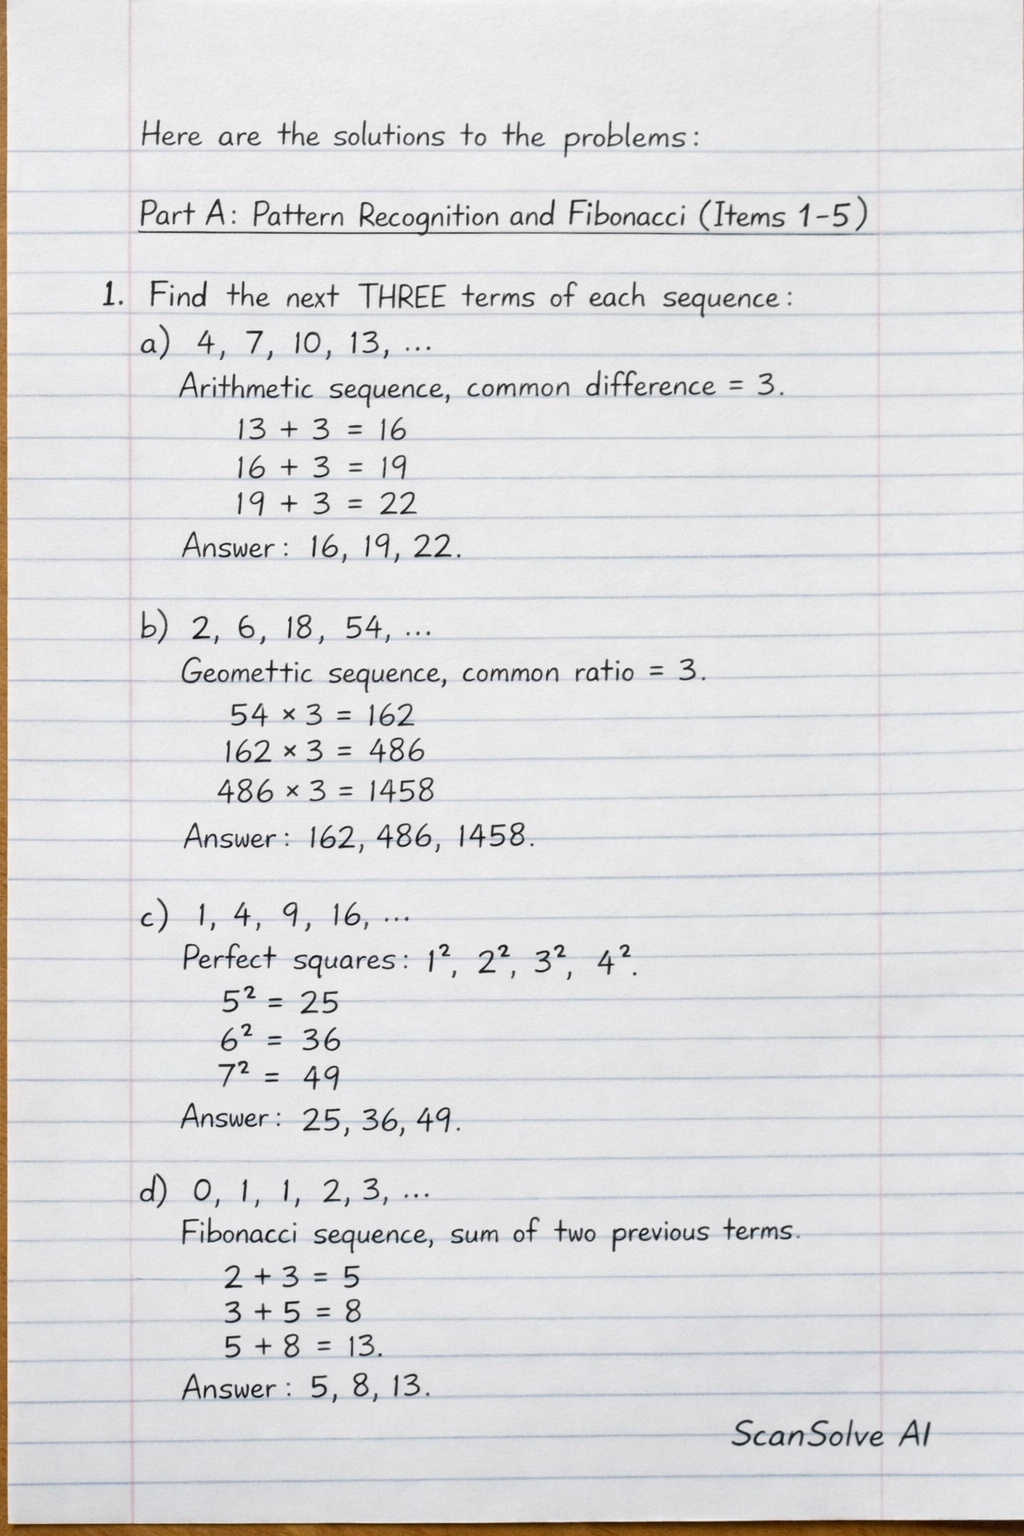 Here are the solutions to the problems:
Part A: Pattern Recognition and Fibonacci (Items 1-5)
1. Find the next THREE terms of each sequence:
a) 4, 7, 10, 13, ...
Arithmetic sequence, common difference = 3.
13 + 3 = 16
16 + 3 = 19
19 + 3 = 22
Answer: 16, 19, 22.
b) 2, 6, 18, 54, ...
Geomettic sequence, common ratio = 3.
54 × 3 = 162
162 × 3 = 486
486 × 3 = 1458
Answer: 162, 486, 1458.
c) 1, 4, 9, 16, ...
Perfect squares: 1², 2², 3², 4².
5² = 25
6² = 36
7² = 49
Answer: 25, 36, 49.
d) 0, 1, 1, 2, 3, ...
Fibonacci sequence, sum of two previous terms.
2 + 3 = 5
3 + 5 = 8
5 + 8 = 13.
Answer: 5, 8, 13.
ScanSolve AI